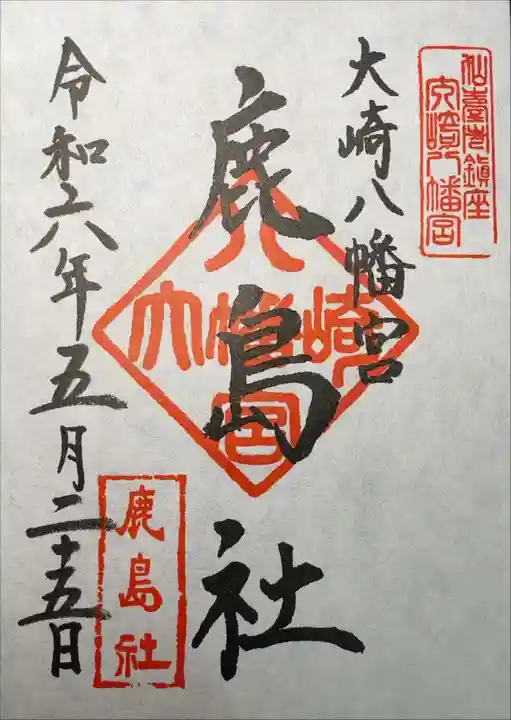 仙臺嵜鎮座
大崎八幡宮
大崎八幡宮
鹿島社
八
大幡崎
宮
鹿島社
令和六年五月二十五日